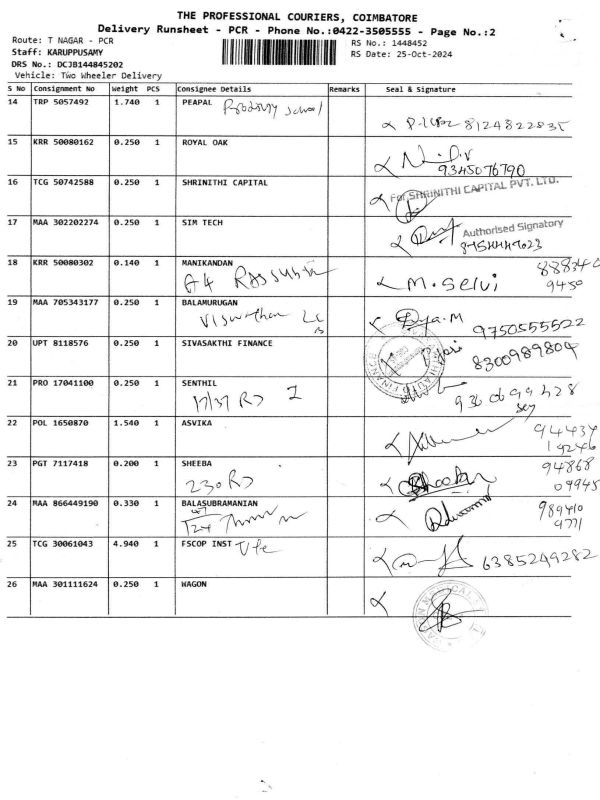 THE PROFESSIONAL COURIERS, COIMBATORE
Delivery Runsheet - PCR - Phone No.:0422-3505555 - Page No.:2
Route: T NAGAR - PCR
RS No.: 1448452
Staff: KARUPPUSAMY
RS Date: 25-Oct-2024
DRS No.: DCJB144845202
Vehicle: Two Wheeler Delivery
S No Consignment No Weight PCS Consignee Details Remarks Seal & Signature
14 TRP 5057492 1.740 1 PEAPAL School
8124822835
15 KRR 50080162 0.250 1 ROYAL OAK
9345076790
16 TCG 50742588 0.250 1 SHRINITHI CAPITAL For SHRINITHI CAPITAL PVT. LTD.
17 MAA 302202274 0.250 1 SIM TECH Authorised Signatory
18 KRR 50080302 0.140 1 MANIKANDAN 88834
M. Selvi 9450
19 MAA 705343177 0.250 1 BALAMURUGAN
Viswanathan Divya.M 9750555522
20 UPT 8118576 0.250 1 SIVASAKTHI FINANCE
8300989804
21 PRO 17041100 0.250 1 SENTHIL
17/37 RJ
22 POL 1650870 1.540 1 ASVIKA 94434
19246
23 PGT 7117418 0.200 1 SHEEBA 94868
230 RJ 09945
24 MAA 866449190 0.330 1 BALASUBRAMANIAN 989410
9771
25 TCG 30061043 4.940 1 FSCOP INST
6385249282
26 MAA 301111624 0.250 1 WAGON